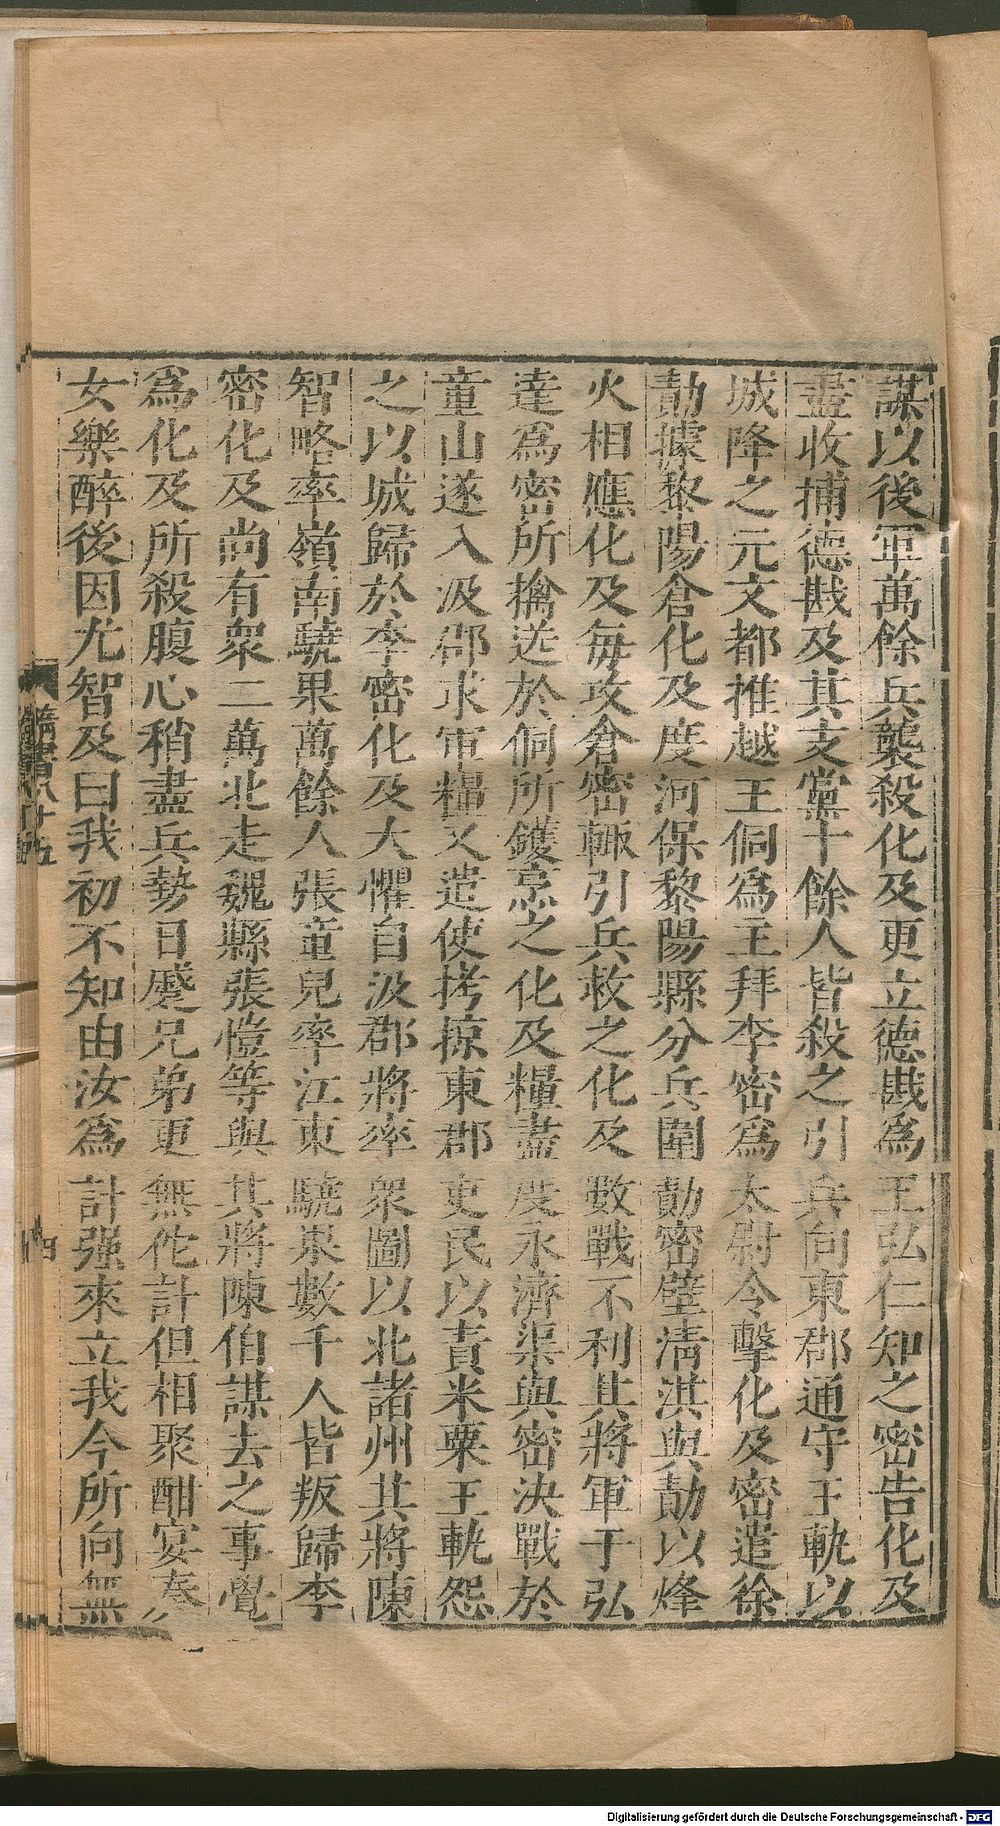 謀以後軍萬餘兵襲殺化及更立德戡爲王弘仁知之密告化及
盡收捕德戡及其支黨十餘人皆殺之引兵向東郡通守王軌以
城降之元文都推越王侗爲主拜李密爲太尉令擊化及密遣徐
勣據黎陽倉化及度河保黎陽縣分兵圍勣密壁淸淇與勣以烽
火相應化及每攻倉密輒引兵救之化及數戰不利其將軍于弘
達爲密所擒送於侗所鑊烹之化及糧盡度永濟渠與密決戰於
童山遂入汲郡求軍糧又遣使拷掠東郡吏民以責米粟王軌怨
之以城歸於李密化及大懼自汲郡將率衆圖以北諸州其將陳
智略率嶺南驍果萬餘人張童兒率江東驍果數千人皆叛歸李
密化及尚有衆二萬北走魏縣張愷等與其將陳伯謀去之事覺
爲化及所殺腹心稍盡兵勢日蹙兄弟更無佗計但相聚酣宴奏
女樂醉後因尤智及曰我初不知由汝爲計强來立我今所向無
隋書八十五
四
Digitalisierung gefördert durch die Deutsche Forschungsgemeinschaft - DFG